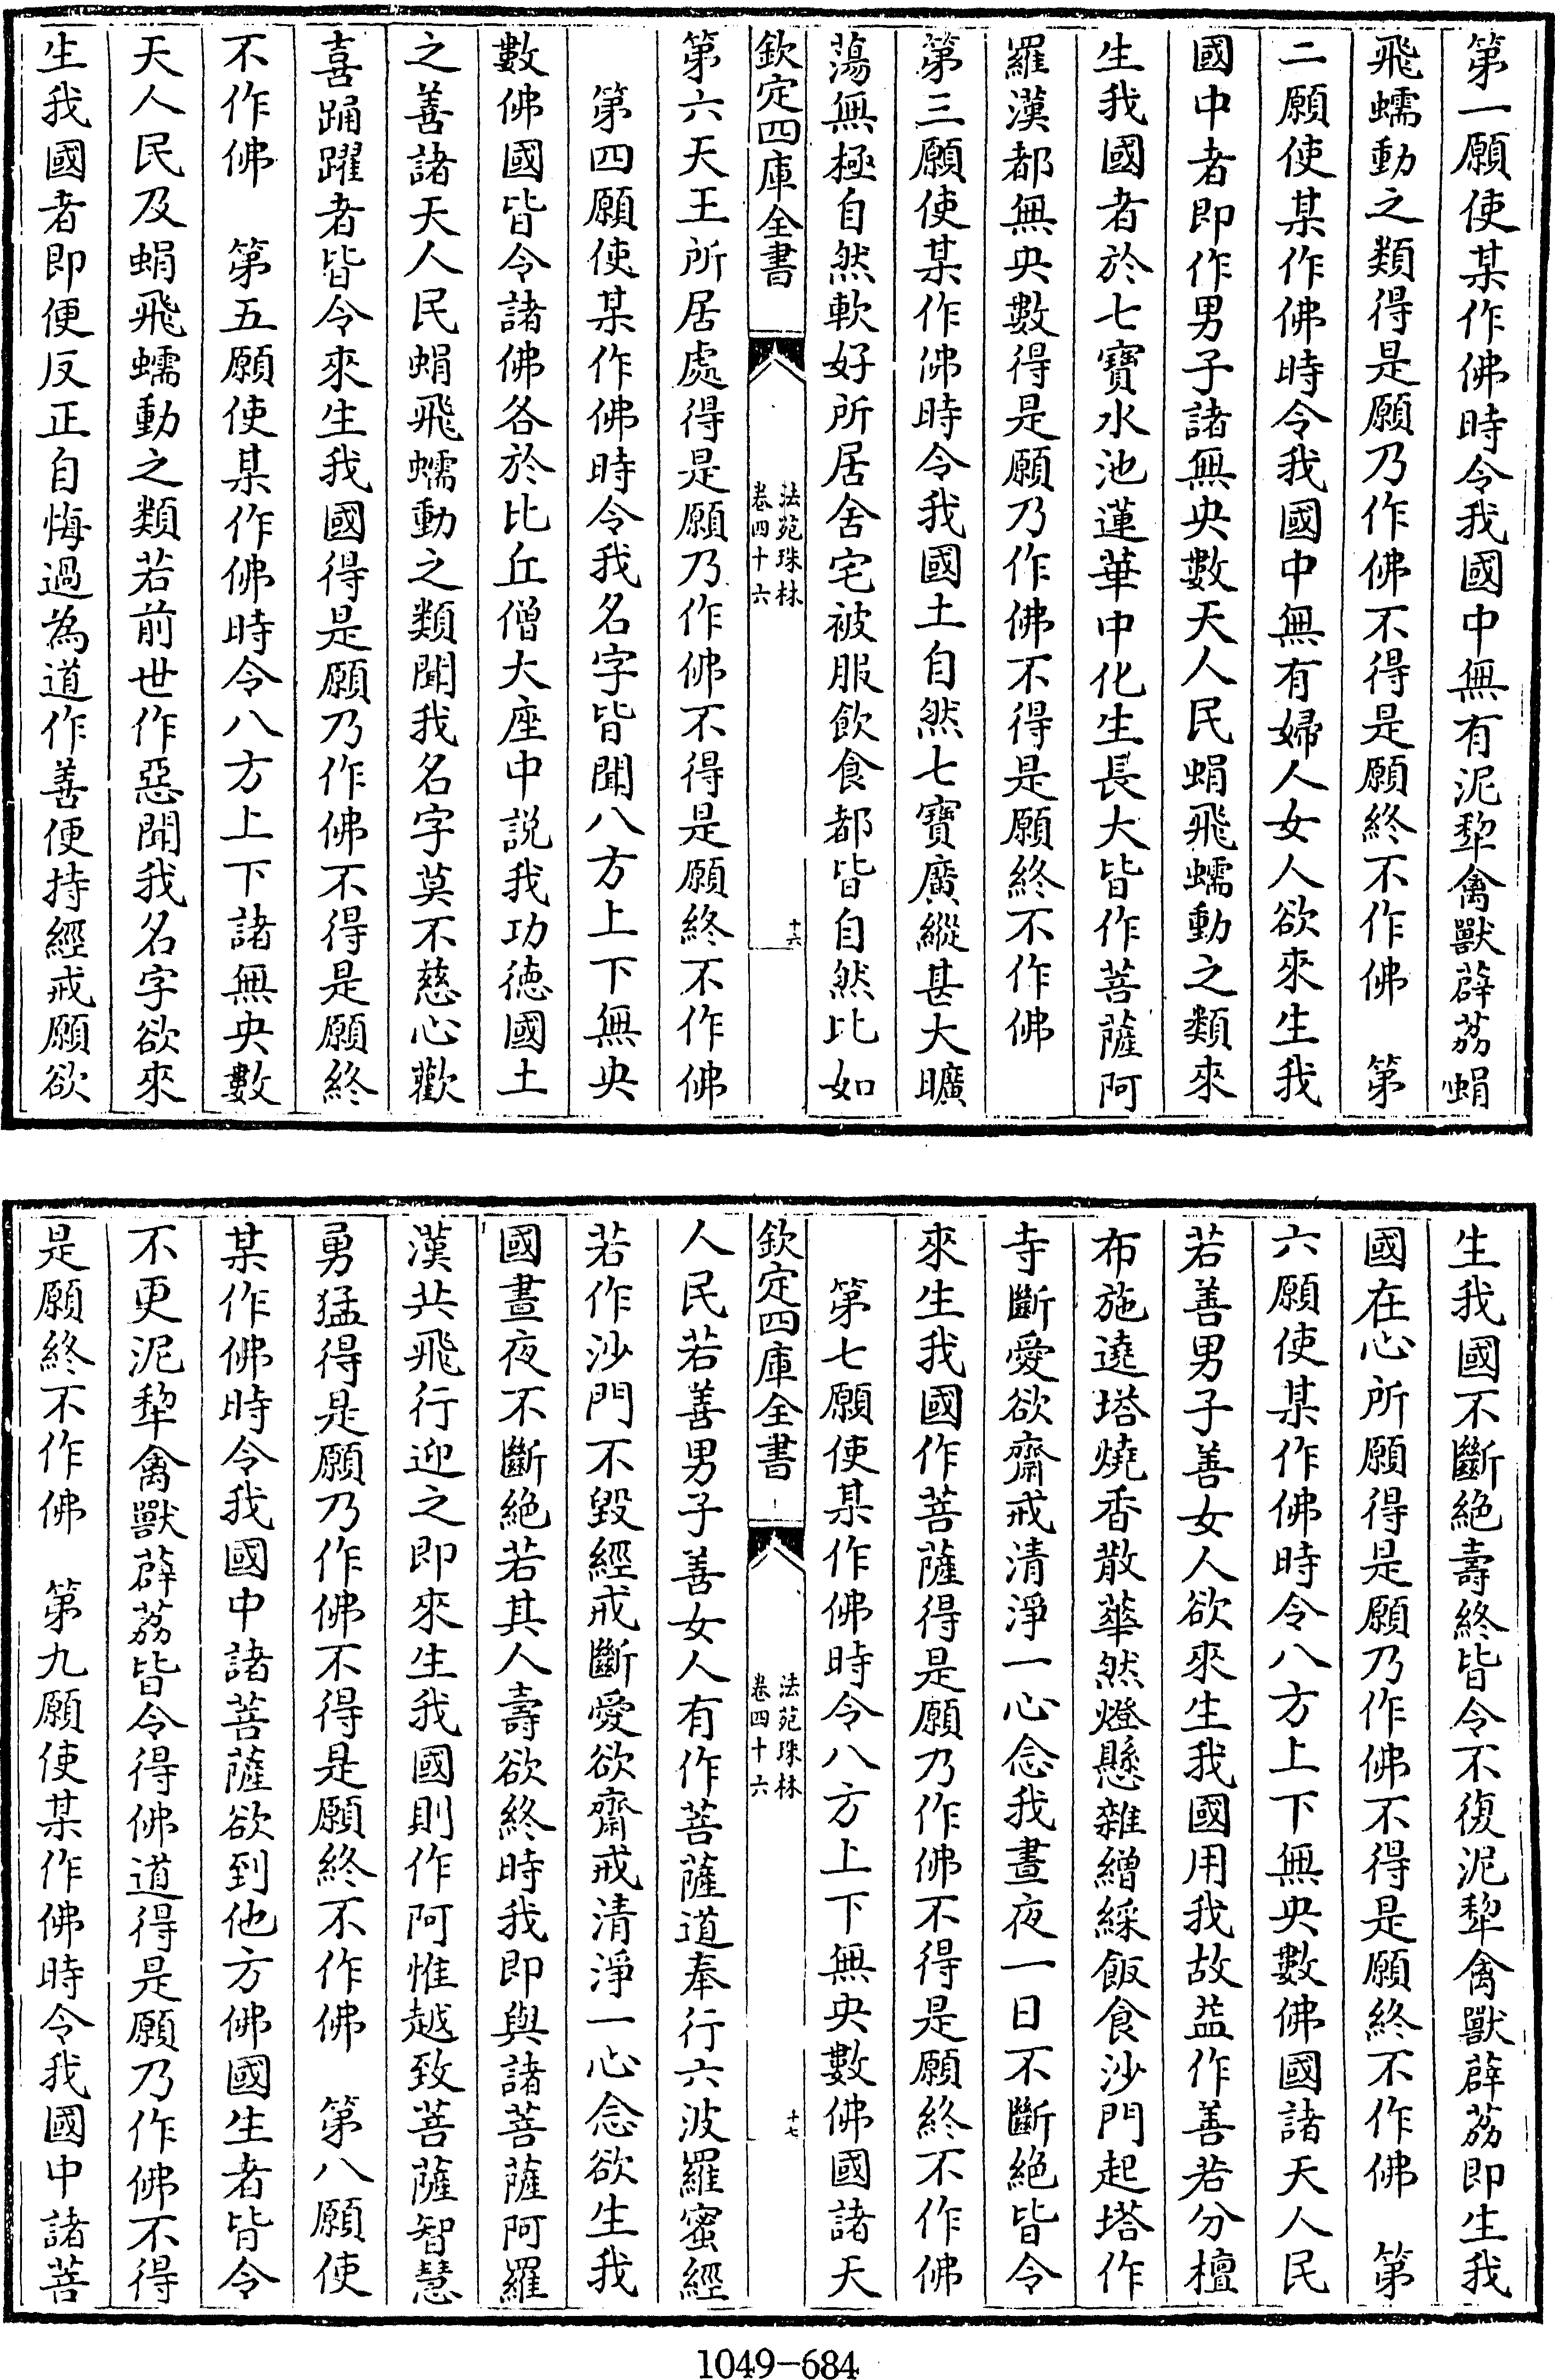 第一願使某作佛時令我國中無有泥犂禽獸薜荔蜎
飛蠕動之類得是願乃作佛不得是願終不作佛　第
二願使某作佛時令我國中無有婦人女人欲來生我
國中者即作男子諸無央數天人民蜎飛蠕動之類來
生我國者於七寶水池蓮華中化生長大皆作菩薩阿
羅漢都無央數得是願乃作佛不得是願終不作佛
第三願使某作佛時令我國土自然七寶廣縱甚大曠
蕩無極自然軟好所居舍宅被服飲食都皆自然比如
欽定四庫全書
法苑珠林
卷四十六
十六
第六天王所居處得是願乃作佛不得是願終不作佛
第四願使某作佛時令我名字皆聞八方上下無央
數佛國皆令諸佛各於比丘僧大座中說我功德國土
之善諸天人民蜎飛蠕動之類聞我名字莫不慈心歡
喜踊躍者皆令來生我國得是願乃作佛不得是願終
不作佛　第五願使某作佛時令八方上下諸無央數
天人民及蜎飛蠕動之類若前世作惡聞我名字欲來
生我國者即便反正自悔過為道作善便持經戒願欲
生我國不斷絕壽終皆令不復泥犂禽獸薜荔即生我
國在心所願得是願乃作佛不得是願終不作佛　第
六願使某作佛時令八方上下無央數佛國諸天人民
若善男子善女人欲來生我國用我故益作善若分檀
布施遶塔燒香散華然燈懸雜繒綵飯食沙門起塔作
寺斷愛欲齋戒清淨一心念我晝夜一日不斷絕皆令
來生我國作菩薩得是願乃作佛不得是願終不作佛
第七願使某作佛時令八方上下無央數佛國諸天
欽定四庫全書
法苑珠林
卷四十六
十七
人民若善男子善女人有作菩薩道奉行六波羅蜜經
若作沙門不毀經戒斷愛欲齋戒清淨一心念欲生我
國晝夜不斷絕若其人壽欲終時我即與諸菩薩阿羅
漢共飛行迎之即來生我國則作阿惟越致菩薩智慧
勇猛得是願乃作佛不得是願終不作佛　第八願使
某作佛時令我國中諸菩薩欲到他方佛國生者皆令
不更泥犂禽獸薜荔皆令得佛道得是願乃作佛不得
是願終不作佛　第九願使某作佛時令我國中諸菩
1049-684